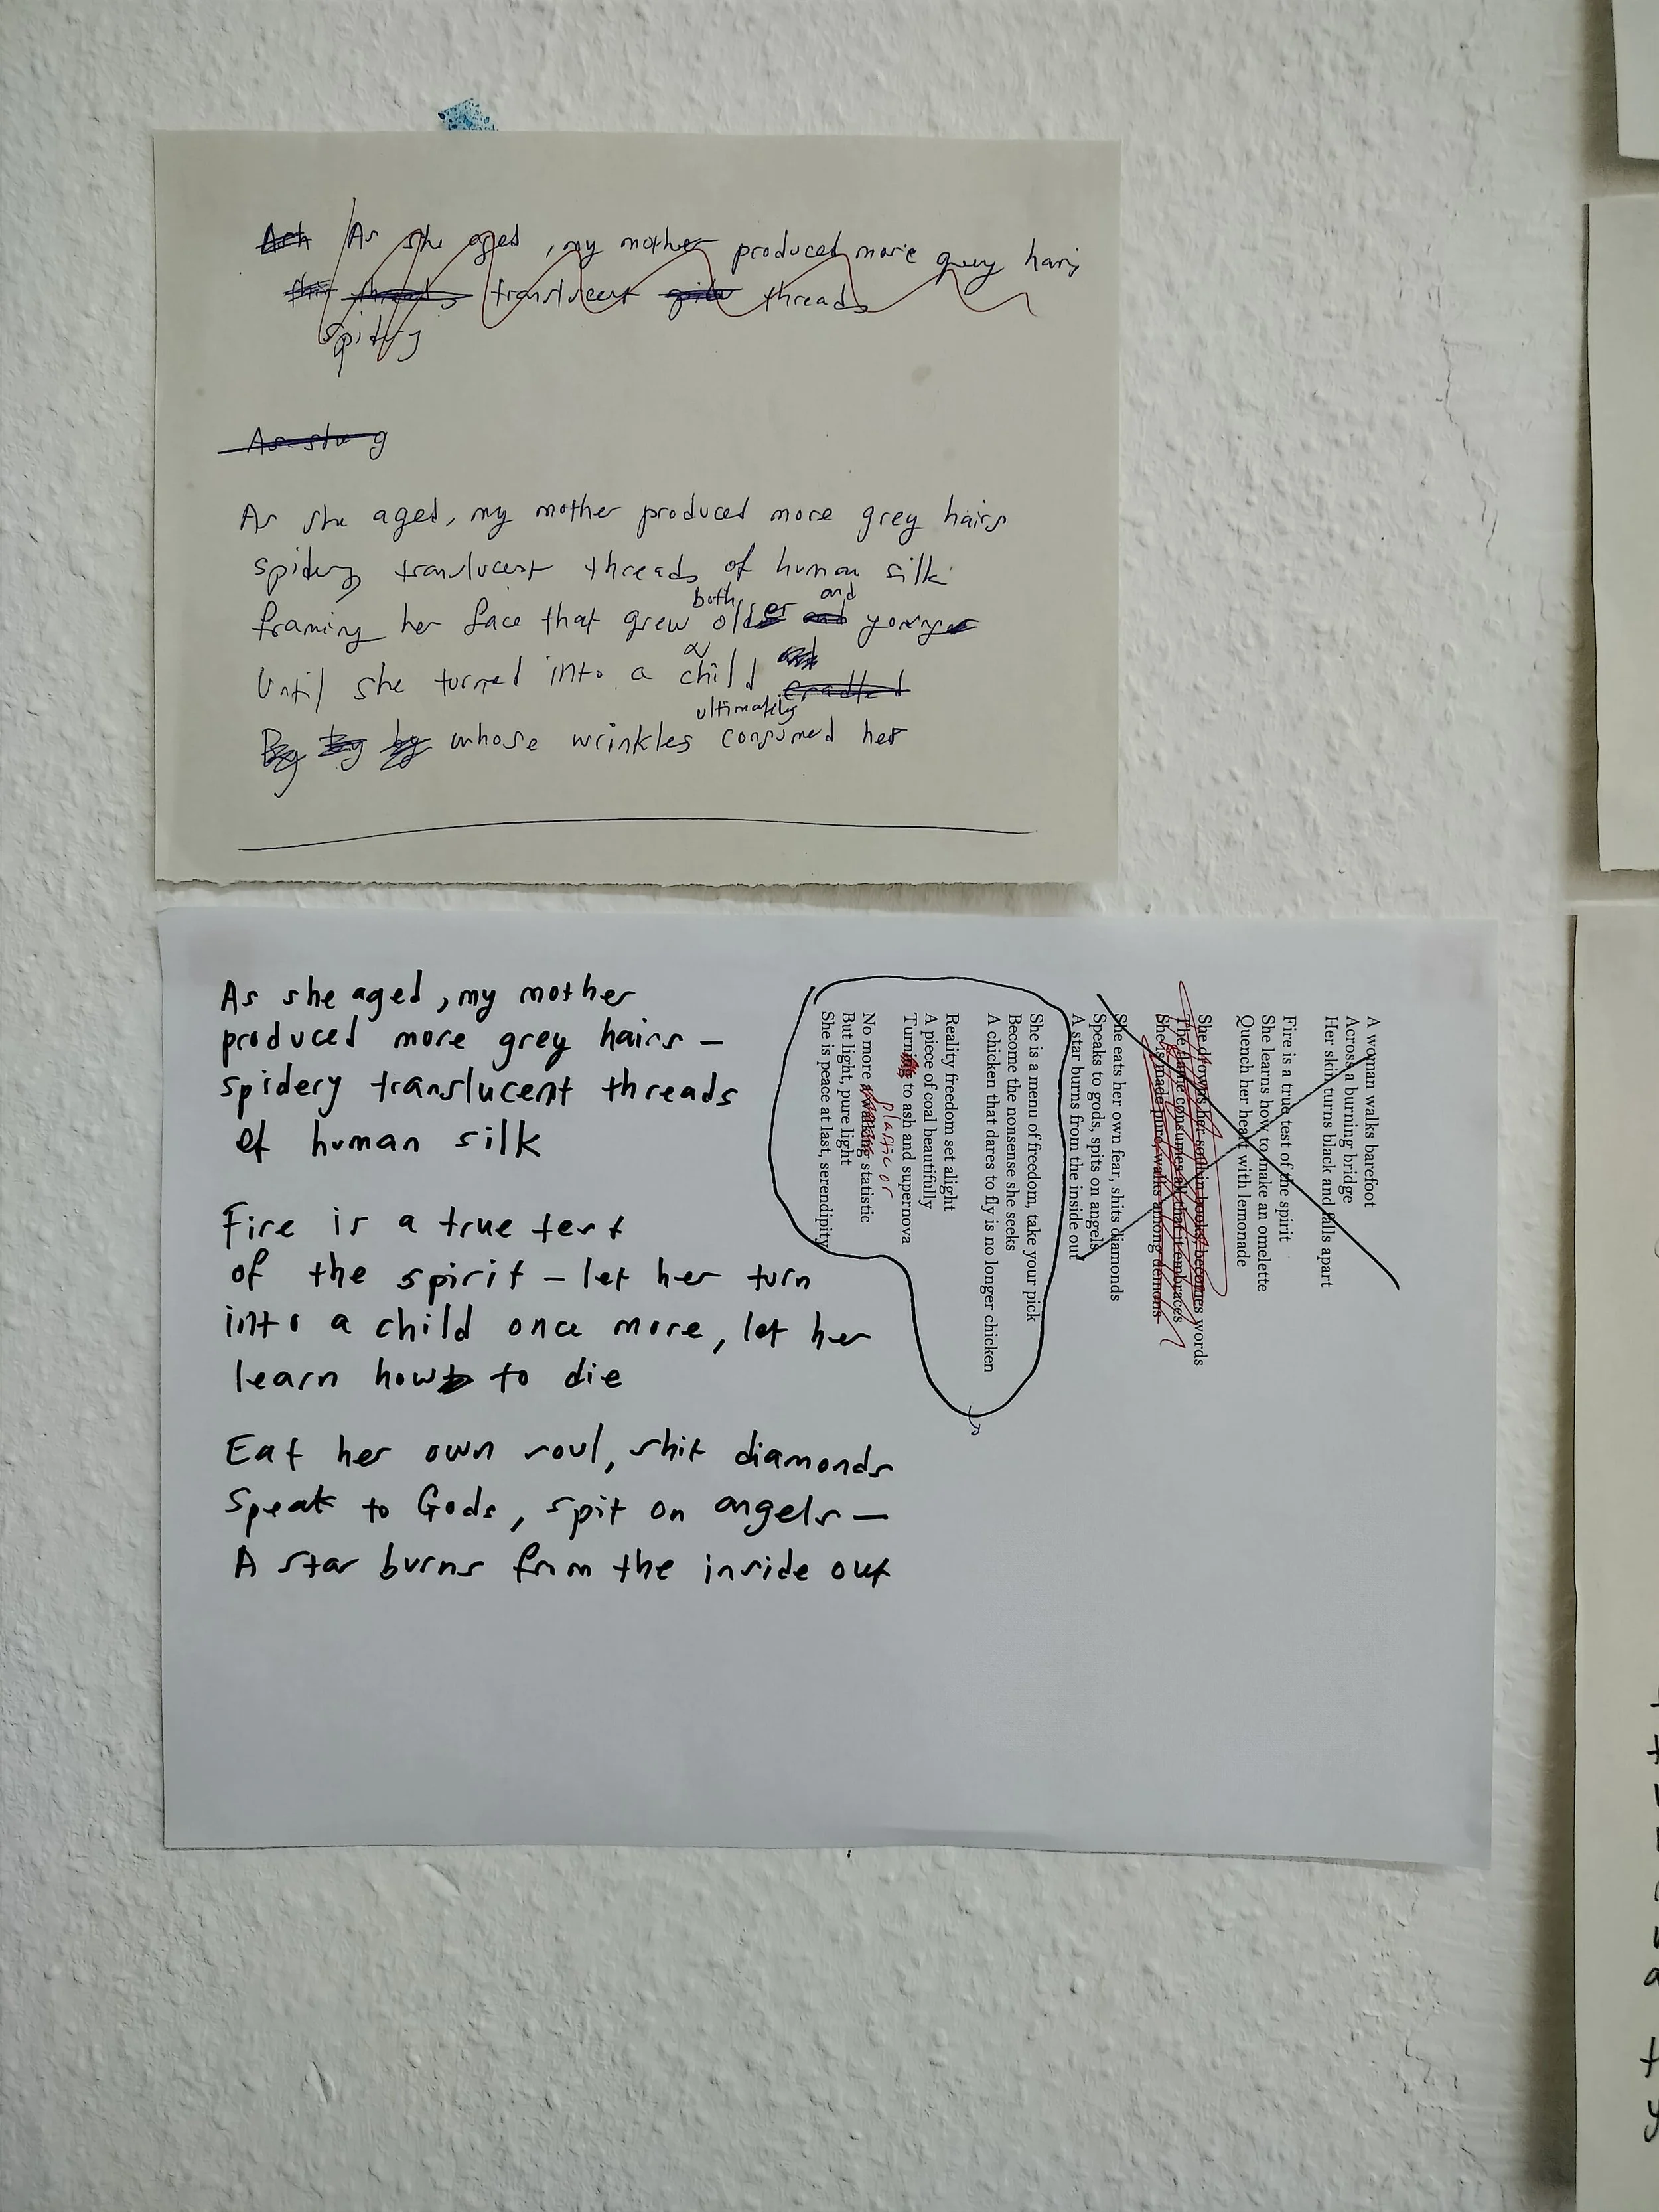 As she aged, my mother produced more grey hairs
translucent threads
spidery
As she g
As she aged, my mother produced more grey hairs
spidery translucent threads of human silk
framing her face that grew both older and young
Until she turned into a child cradled
By by by whose wrinkles ultimately consumed her
As she aged, my mother
produced more grey hairs –
spidery translucent threads
of human silk
Fire is a true test
of the spirit – let her turn
into a child once more, let her
learn how to die
Eat her own soul, shit diamonds
Speak to Gods, spit on angels –
A star burns from the inside out
A woman walks barefoot
Across a burning bridge
Her skin turns black and falls apart
Fire is a true test of the spirit
She learns how to make an omelette
Quench her heart with lemonade
She drowns her soul in books, becomes words
The flame consumes all that it embraces
She is made pure, walks among demons
She eats her own fear, shits diamonds
Speaks to gods, spits on angels
A star burns from the inside out
She is a menu of freedom, take your pick
Become the nonsense she seeks
A chicken that dares to fly is no longer chicken
Reality freedom set alight
A piece of coal beautifully
Turning to ash and supernova
No more plastic or statistic
But light, pure light
She is peace at last, serendipity